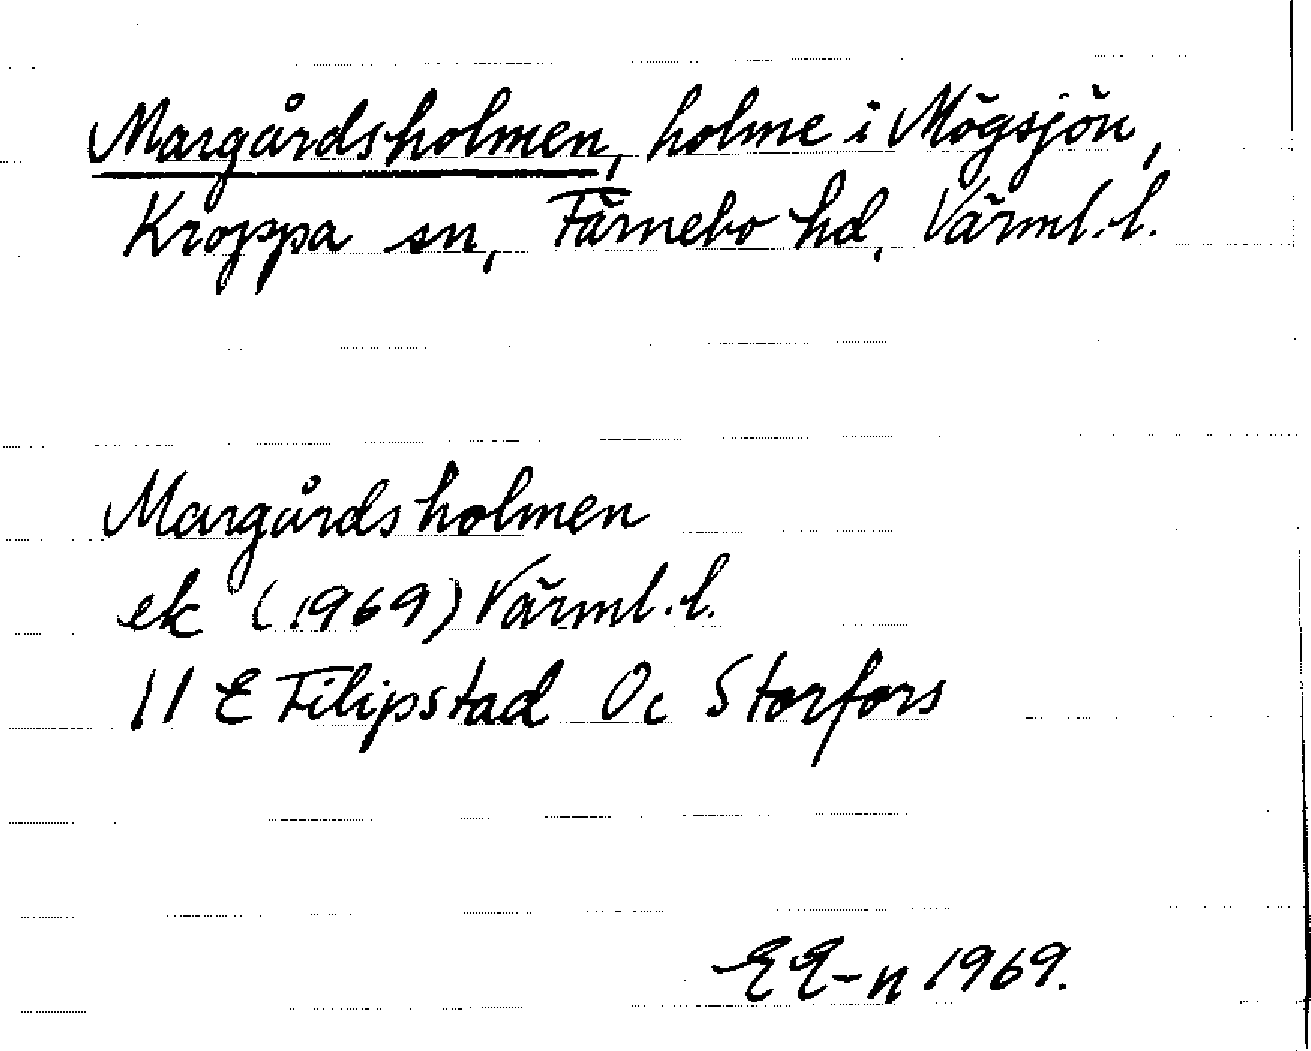 Margårdsholmen, holme i Mögsjön,
Kroppa sn, Färnebo hd, Värml. l.
Margårdsholmen
ek (1969) Värml. l.
11 E Filipstad Oc Storfors
EE-n 1969.